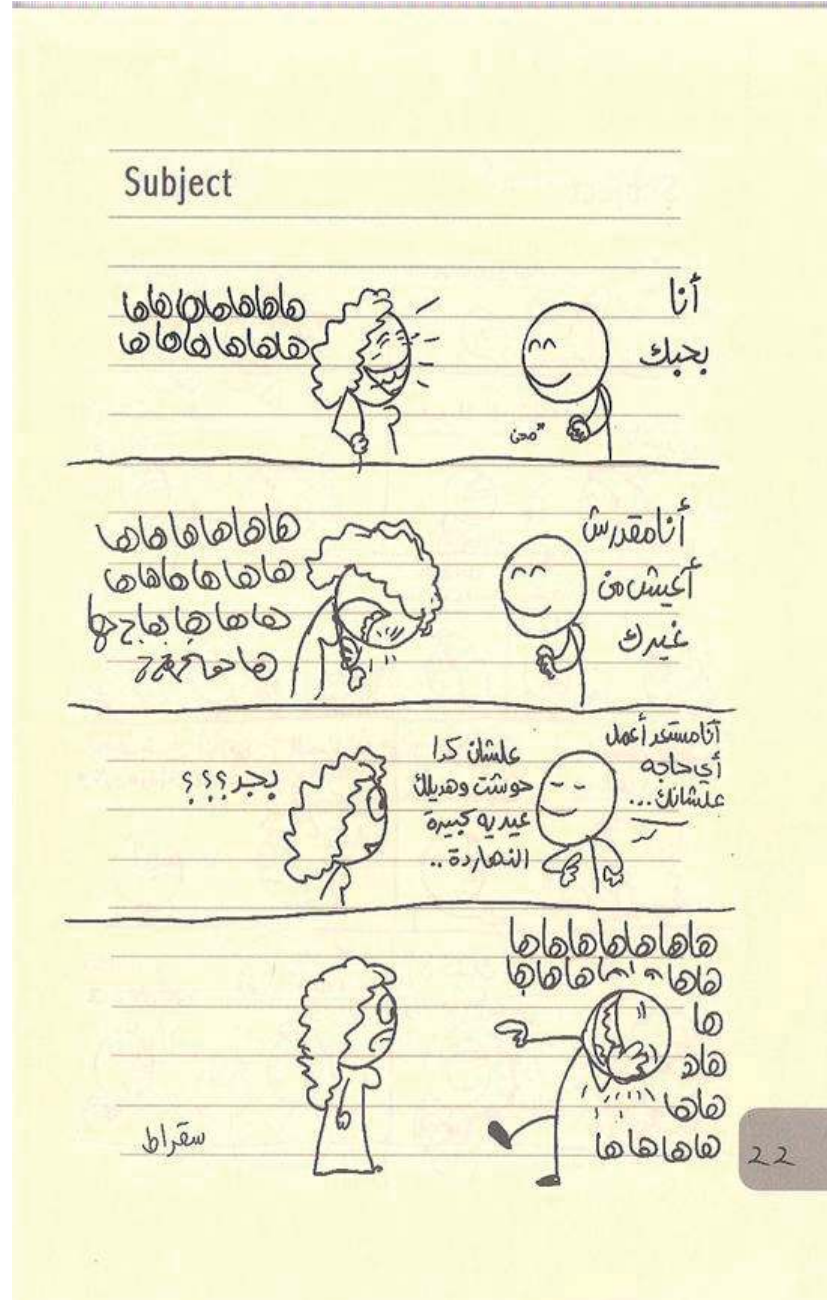 Subject
أنا
بحبك
*محن
هاهاهاهاهاهاها
هاهاهاهاهاها
أنا مقدرش
أعيش من
غيرك
هاهاهاهاهاها
هاهاهاهاهاها
أنا مستعد أعمل
أي حاجه
علشانك...
علشان كدا
حوشت وهديلك
عيديه كبيرة
النهاردة..
بجد؟؟؟
هاهاهاهاهاهاها
ها
هاه
هاها
هاهاهاها
سقراط
22